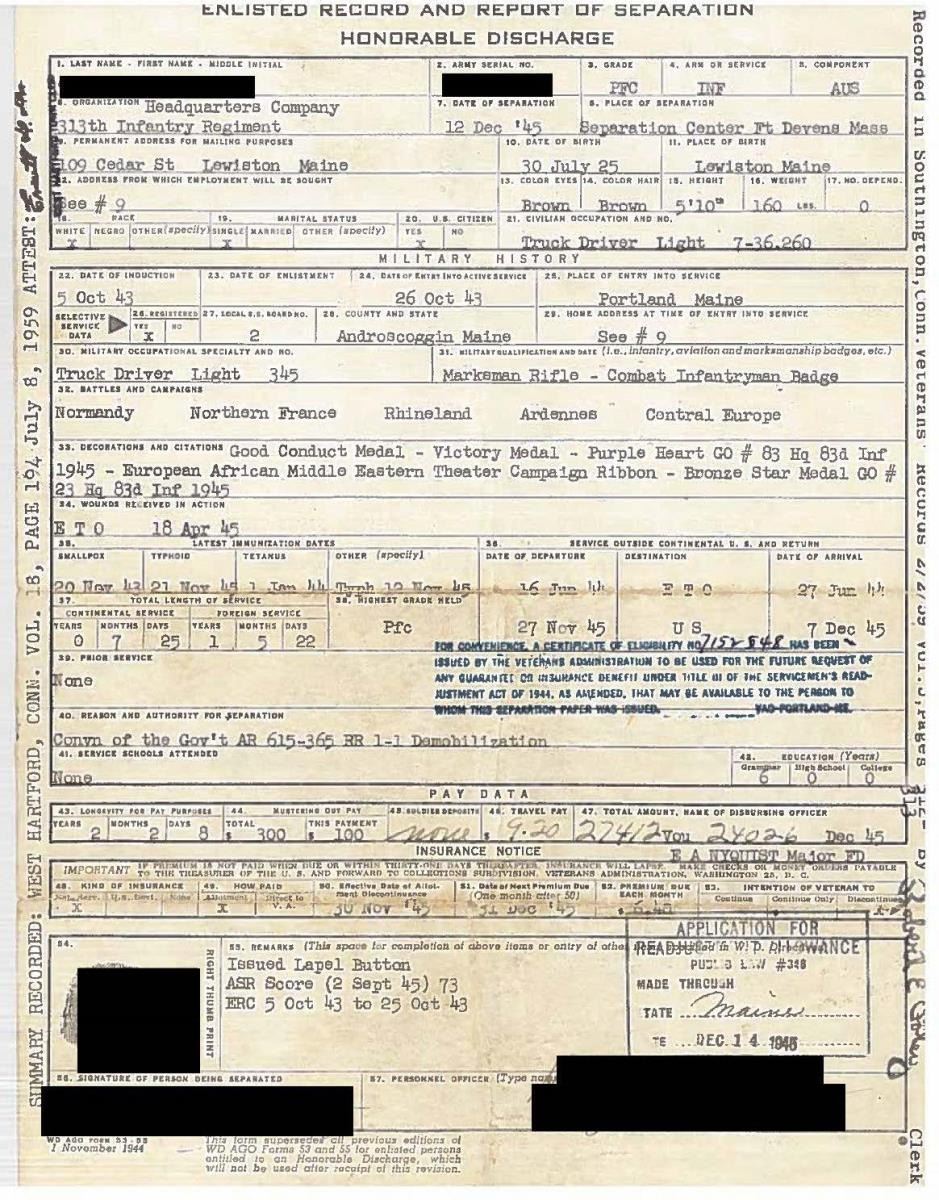 ENLISTED RECORD AND REPORT OF SEPARATION
HONORABLE DISCHARGE
1. LAST NAME - FIRST NAME - MIDDLE INITIAL
2. ARMY SERIAL NO.
3. GRADE
4. ARM OR SERVICE
5. COMPONENT
PFC INF AUS
6. ORGANIZATION Headquarters Company
7. DATE OF SEPARATION
8. PLACE OF SEPARATION
313th Infantry Regiment
12 Dec '45
Separation Center Ft Devens Mass
9. PERMANENT ADDRESS FOR MAILING PURPOSES
10. DATE OF BIRTH
11. PLACE OF BIRTH
109 Cedar St Lewiston Maine
30 July 25
Lewiston Maine
12. ADDRESS FROM WHICH EMPLOYMENT WILL BE SOUGHT
13. COLOR EYES
14. COLOR HAIR
15. HEIGHT
16. WEIGHT
17. NO. DEPEND.
See # 9
Brown
Brown
5'10"
160 LBS.
0
18. RACE
19. MARITAL STATUS
20. U.S. CITIZEN
21. CIVILIAN OCCUPATION AND NO.
WHITE NEGRO OTHER (specify) SINGLE MARRIED OTHER (specify) YES NO
X X X
Truck Driver Light 7-36.260
MILITARY HISTORY
22. DATE OF INDUCTION
23. DATE OF ENLISTMENT
24. DATE OF ENTRY INTO ACTIVE SERVICE
25. PLACE OF ENTRY INTO SERVICE
5 Oct 43
26 Oct 43
Portland Maine
SELECTIVE SERVICE DATA
26. REGISTERED
YES NO
X
27. LOCAL S.S. BOARD NO.
2
28. COUNTY AND STATE
Androscoggin Maine
29. HOME ADDRESS AT TIME OF ENTRY INTO SERVICE
See # 9
30. MILITARY OCCUPATIONAL SPECIALTY AND NO.
31. MILITARY QUALIFICATION AND DATE (i.e., infantry, aviation and marksmanship badges, etc.)
Truck Driver Light 345
Marksman Rifle - Combat Infantryman Badge
32. BATTLES AND CAMPAIGNS
Normandy Northern France Rhineland Ardennes Central Europe
33. DECORATIONS AND CITATIONS Good Conduct Medal - Victory Medal - Purple Heart GO # 83 Hq 83d Inf
1945 - European African Middle Eastern Theater Campaign Ribbon - Bronze Star Medal GO #
23 Hq 83d Inf 1945
34. WOUNDS RECEIVED IN ACTION
E T O 18 Apr 45
35. LATEST IMMUNIZATION DATES
36. SERVICE OUTSIDE CONTINENTAL U. S. AND RETURN
SMALLPOX TYPHOID TETANUS OTHER (specify)
DATE OF DEPARTURE DESTINATION DATE OF ARRIVAL
20 Nov 43 21 Nov 45 1 Jan 44 Typh 12 Nov 45
16 Jun 44 E T O 27 Jun 44
37. TOTAL LENGTH OF SERVICE
38. HIGHEST GRADE HELD
CONTINENTAL SERVICE FOREIGN SERVICE
YEARS MONTHS DAYS YEARS MONTHS DAYS
0 7 25 1 5 22
Pfc
27 Nov 45 U S 7 Dec 45
39. PRIOR SERVICE
None
FOR CONVENIENCE, A CERTIFICATE OF ELIGIBILITY NO 7152848 HAS BEEN
ISSUED BY THE VETERANS ADMINISTRATION TO BE USED FOR THE FUTURE REQUEST OF
ANY GUARANTEE OR INSURANCE BENEFIT UNDER TITLE III OF THE SERVICEMEN'S READ-
JUSTMENT ACT OF 1944, AS AMENDED, THAT MAY BE AVAILABLE TO THE PERSON TO
WHOM THIS SEPARATION PAPER WAS ISSUED. VAO-PORTLAND-ME.
40. REASON AND AUTHORITY FOR SEPARATION
Convn of the Gov't AR 615-365 RR 1-1 Demobilization
41. SERVICE SCHOOLS ATTENDED
None
42. EDUCATION (Years)
Grammar High School College
6 0 0
PAY DATA
43. LONGEVITY FOR PAY PURPOSES
44. MUSTERING OUT PAY
45. SOLDIER DEPOSITS
46. TRAVEL PAY
47. TOTAL AMOUNT, NAME OF DISBURSING OFFICER
YEARS MONTHS DAYS TOTAL THIS PAYMENT
2 2 8 $ 300 $ 100 none $ 9.20 27412 Vou 24026 Dec 45
INSURANCE NOTICE
E A NYQUIST Major FD
IMPORTANT IF PREMIUM IS NOT PAID WHEN DUE OR WITHIN THIRTY-ONE DAYS THEREAFTER, INSURANCE WILL LAPSE. MAKE CHECKS OR MONEY ORDERS PAYABLE
TO THE TREASURER OF THE U. S. AND FORWARD TO COLLECTIONS SUBDIVISION, VETERANS ADMINISTRATION, WASHINGTON 25, D. C.
48. KIND OF INSURANCE
49. HOW PAID
50. Effective Date of Allotment Discontinuance
51. Date of Next Premium Due (One month after 50)
52. PREMIUM DUE EACH MONTH
53. INTENTION OF VETERAN TO
Nat. Serv. U.S. Govt. None Allotment Direct to V. A.
Continue Continue Only Discontinue
X X 30 Nov '45 31 Dec '45 $ 6.40 X
54.
RIGHT THUMB PRINT
55. REMARKS (This space for completion of above items or entry of other items specified in W. D. Directives)
Issued Lapel Button
ASR Score (2 Sept 45) 73
ERC 5 Oct 43 to 25 Oct 43
APPLICATION FOR
READJUSTMENT ALLOWANCE
PUBLIC LAW #346
MADE THROUGH
TATE Maine
TE DEC 14 1945
56. SIGNATURE OF PERSON BEING SEPARATED
57. PERSONNEL OFFICER (Type nam
WD AGO FORM 53-55
1 November 1944
This form supersedes all previous editions of
WD AGO Forms 53 and 55 for enlisted persons
entitled to an Honorable Discharge, which
will not be used after receipt of this revision.
SUMMARY RECORDED: WEST HARTFORD, CONN. VOL. 18, PAGE 194 July 8, 1959 ATTEST:
Recorded in Southington, Conn. Veterans' Records 2/2/59 Vol. 3, Pages 312- by
313
Clerk